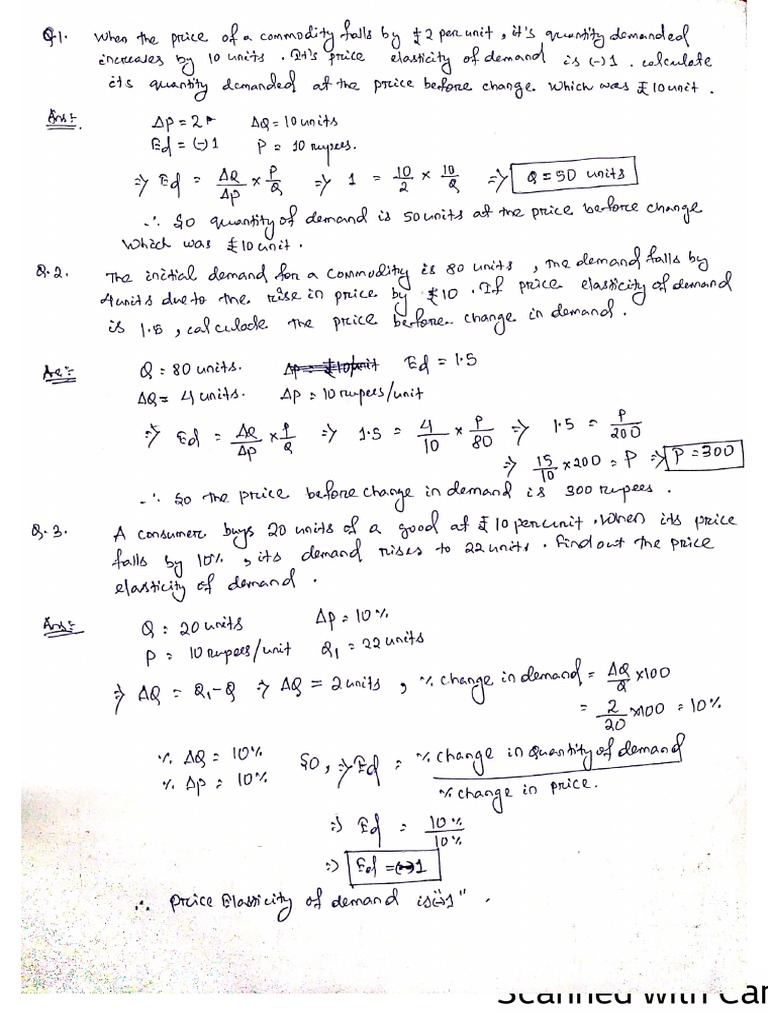 Q1. When the price of a commodity falls by ₹2 per unit, it's quantity demanded
increases by 10 units. It's price elasticity of demand is (-)1. calculate
its quantity demanded at the price before change which was ₹10unit.
Ans:-
ΔP = 2 ΔQ = 10 units
Ed = (-)1 P = 10 rupees.
⇒ Ed = ΔQ/ΔP × P/Q ⇒ 1 = 10/2 × 10/Q ⇒ Q = 50 units
∴ So quantity of demand is 50 units at the price before change
which was ₹10unit.
Q.2. The initial demand for a commodity is 80 units, the demand falls by
4units due to the rise in price by ₹10. If price elasticity of demand
is 1.5, calculade the price before change in demand.
Q = 80 units. Ed = 1.5
ΔQ = 4 units. ΔP = 10 rupees/unit
⇒ Ed = ΔQ/ΔP × P/Q ⇒ 1.5 = 4/10 × P/80 ⇒ 1.5 = P/200
⇒ 15/10 × 200 = P ⇒ P = 300
∴ So the price before change in demand is 300 rupees.
Q.3. A consumer buys 20 units of a good at ₹10 per unit. When its price
falls by 10%, its demand rises to 22 units. Find out the price
elasticity of demand.
Ans:-
Q = 20 units ΔP = 10%
P = 10 rupees/unit Q₁ = 22 units
⇒ ΔQ = Q₁-Q ⇒ ΔQ = 2 units, % change in demand = ΔQ/Q × 100
= 2/20 × 100 = 10%
% ΔQ = 10% So, ⇒ Ed = % change in Quantity of demand / % change in price.
% ΔP = 10%
⇒ Ed = 10%/10%
⇒ Ed = (-)1
∴ Price Elasticity of demand is "(-)1".